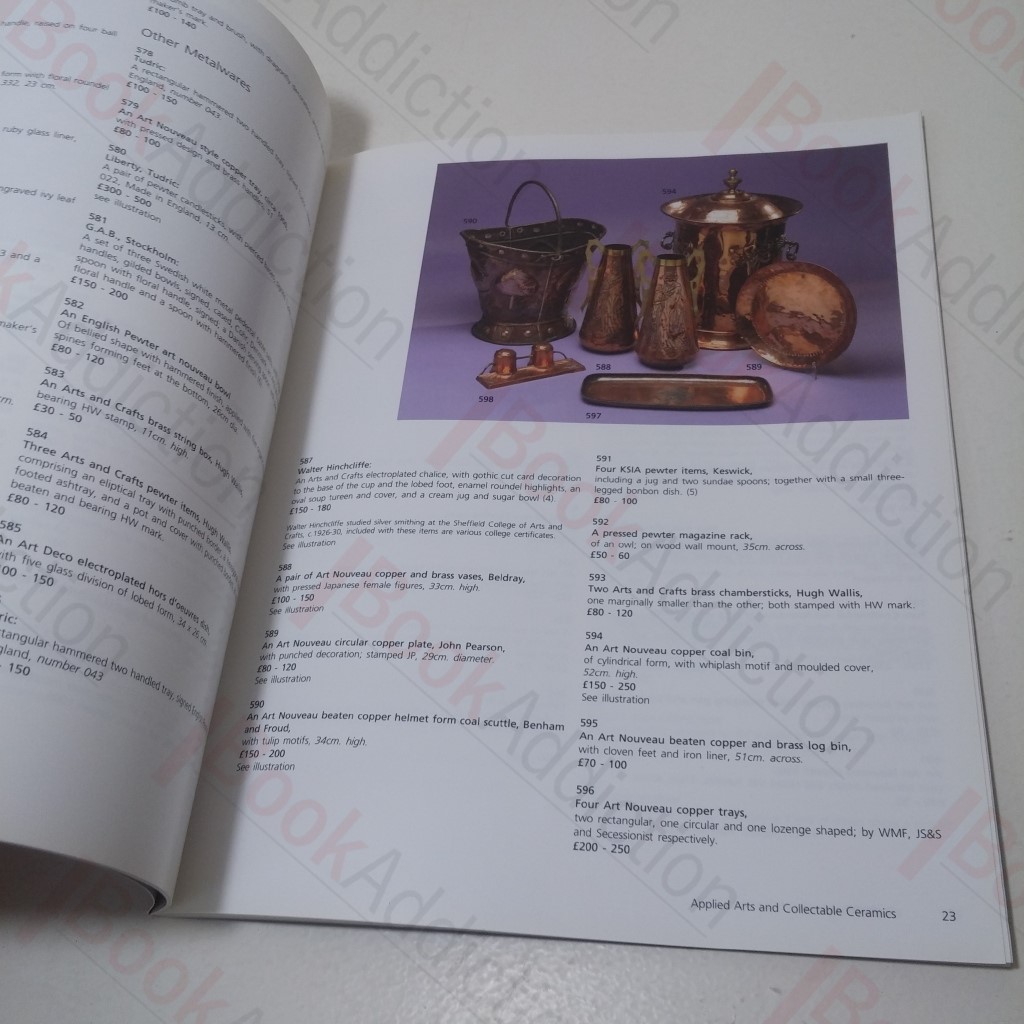 handle, raised on four ball
form with floral roundel
332, 23 cm.
ruby glass liner,
ngraved ivy leaf
3 and a
maker's
cm.
maker's mark.
£100 - 140
Other Metalwares
578
Tudric:
A rectangular hammered two handled tray,
England, number 043.
£100 - 150
579
An Art Nouveau style copper tray,
with pressed design and brass handles, 51
£80 - 100
580
Liberty, Tudric:
A pair of pewter candlesticks, with
022, Made in England, 13 cm.
£300 - 500
see illustration
581
G.A.B., Stockholm:
A set of three Swedish white metal
handles, gilded bowls, signed, cased,
spoon with floral handle, signed, a Danish
floral handle and a spoon with hammered
£150 - 200
582
An English Pewter art nouveau bowl
Of bellied shape with hammered finish, applied
spines forming feet at the bottom, 26cm dia.
£80 - 120
583
An Arts and Crafts brass string box, Hugh Wallis,
bearing HW stamp, 11cm. high.
£30 - 50
584
Three Arts and Crafts pewter items, Hugh Wallis,
comprising an eliptical tray with punched border, a
footed ashtray, and a pot and cover with punched
beaten and bearing HW mark.
£80 - 120
585
An Art Deco electroplated hors d'oeuvres dish,
with five glass division of lobed form, 34 x 26 cm.
100 - 150
ric:
ctangular hammered two handled tray, signed
gland, number 043
- 150
590
594
588
589
598
597
587
Walter Hinchcliffe:
An Arts and Crafts electroplated chalice, with gothic cut card decoration
to the base of the cup and the lobed foot, enamel roundel highlights, an
oval soup tureen and cover, and a cream jug and sugar bowl (4)
£150 - 180
Walter Hinchcliffe studied silver smithing at the Sheffield College of Arts and
Crafts, c.1926-30, included with these items are various college certificates.
See illustration
588
A pair of Art Nouveau copper and brass vases, Beldray,
with pressed Japanese female figures, 33cm. high.
£100 - 150
See illustration
589
An Art Nouveau circular copper plate, John Pearson,
with punched decoration; stamped JP, 29cm. diameter.
£80 - 120
See illustration
590
An Art Nouveau beaten copper helmet form coal scuttle, Benham
and Froud,
with tulip motifs, 34cm. high.
£150 - 200
See illustration
591
Four KSIA pewter items, Keswick,
including a jug and two sundae spoons; together with a small three-
legged bonbon dish. (5)
£80 - 100
592
A pressed pewter magazine rack,
of an owl; on wood wall mount, 35cm. across.
£50 - 60
593
Two Arts and Crafts brass chambersticks, Hugh Wallis,
one marginally smaller than the other; both stamped with HW mark.
£80 - 120
594
An Art Nouveau copper coal bin,
of cylindrical form, with whiplash motif and moulded cover,
52cm. high.
£150 - 250
See illustration
595
An Art Nouveau beaten copper and brass log bin,
with cloven feet and iron liner, 51cm. across.
£70 - 100
596
Four Art Nouveau copper trays,
two rectangular, one circular and one lozenge shaped; by WMF, JS&S
and Secessionist respectively.
£200 - 250
Applied Arts and Collectable Ceramics 23
BookAddiction